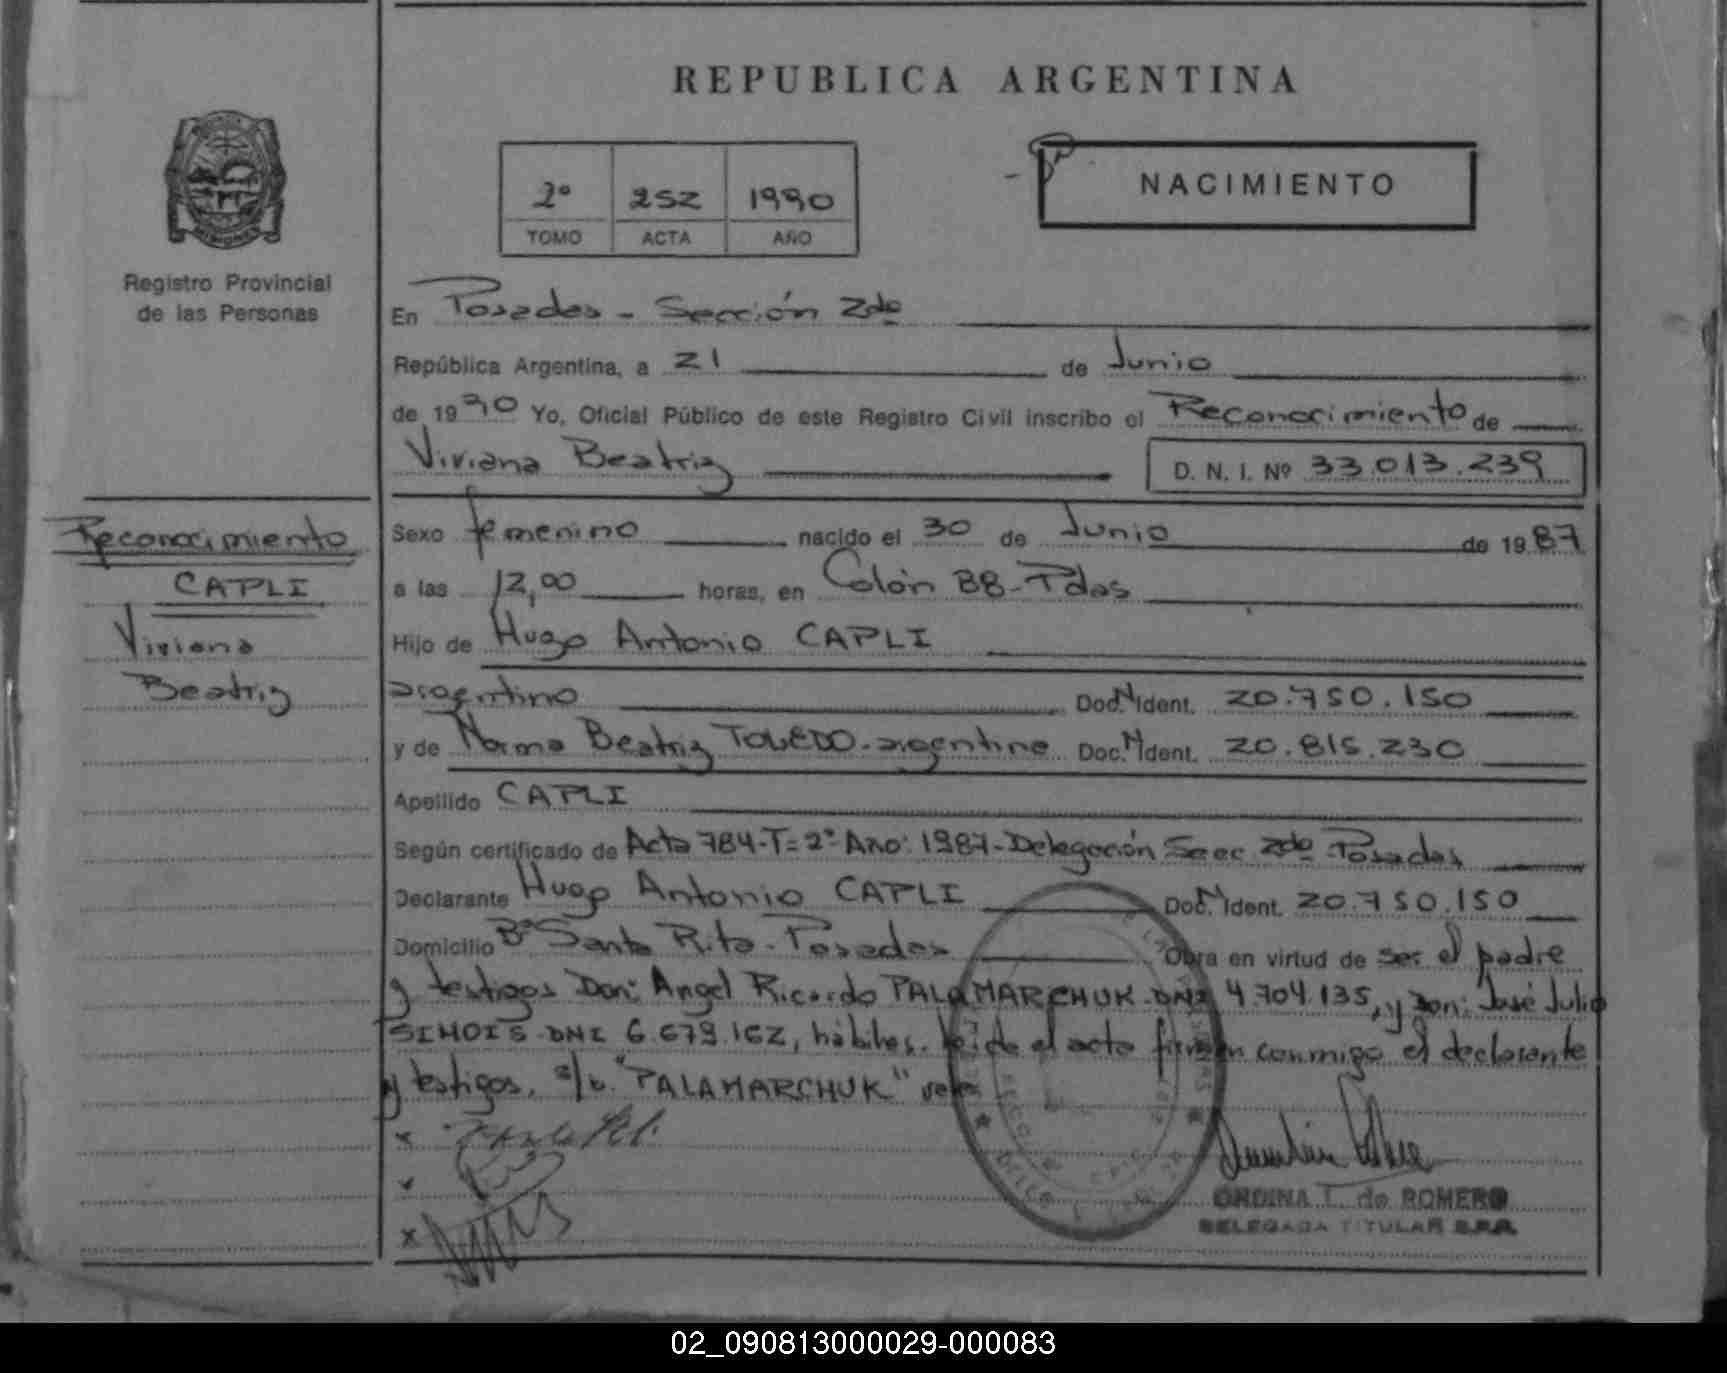 REPUBLICA ARGENTINA
2º 252 1990
TOMO ACTA AÑO
NACIMIENTO
MISIONES
Registro Provincial
de las Personas
En Posadas - Sección 2da
República Argentina, a 21 de Junio
de 1990 Yo, Oficial Público de este Registro Civil inscribo el Reconocimiento de
Viviana Beatriz D. N. I. Nº 33.013.239
Reconocimiento
CAPLI
Viviana
Beatriz
Sexo femenino nacido el 30 de Junio de 1987
a las 12,00 horas, en Colón BB - Pdas
Hijo de Hugo Antonio CAPLI
argentino Doc. N Ident. 20.750.150
y de Norma Beatriz TOLEDO - argentina Doc. N Ident. 20.815.230
Apellido CAPLI
Según certificado de Acta 784-T= 2º Año: 1987 - Delegación Secc 2da Posadas
Declarante Hugo Antonio CAPLI Doc. N Ident. 20.750.150
Domicilio Bº Santa Rita - Posadas Obra en virtud de ser el padre
y testigos Don: Angel Ricardo PALAMARCHUK - DNI 4.704.135, y Don: José Julio
SIMOIS - DNI 6.679.162, hábiles. Leída el acta firman conmigo el declarante
y testigos. s/b. "PALAMARCHUK" vale
ORDINA T. de ROMERO
DELEGADA TITULAR
02_090813000029-000083